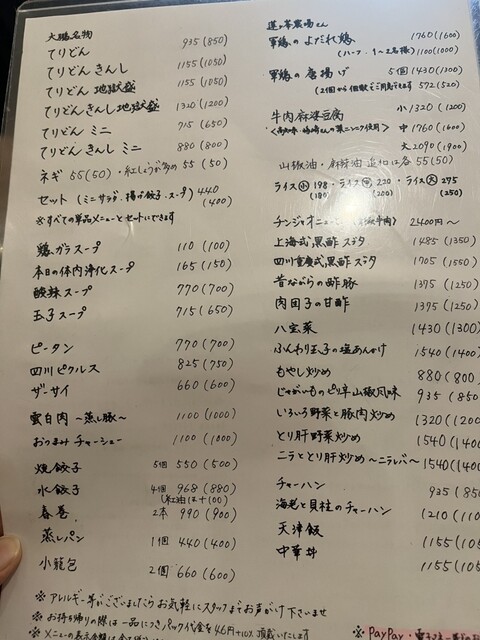 大鵬名物
てりどん 935(850)
てりどん きんし 1155(1050)
てりどん 地獄盛 1155(1050)
てりどん きんし 地獄盛 1320(1200)
てりどん ミニ 715(650)
てりどん きんし ミニ 880(800)
ネギ 55(50)・紅しょうが多め 55(50)
セット(ミニサラダ・揚げ餃子・スープ) 440(400)
※すべての単品メニューとセットにできます
鶏ガラスープ 110(100)
本日の体内浄化スープ 165(150)
酸辣スープ 770(700)
玉子スープ 715(650)
ピータン 770(700)
四川ピクルス 825(750)
ザーサイ 660(600)
雲白肉 ~蒸し豚~ 1100(1000)
おつまみチャーシュー 1100(1000)
焼餃子 5個 550(500)
水餃子 4個 968(880)
(紅油は+100)
春巻 2本 990(900)
蒸しパン 1個 440(400)
小籠包 2個 660(600)
※アレルギー等がございましたらお気軽にスタッフまでお声がけ下さいませ
※お持ち帰りの際は一品につきパック代金を46円+10%頂戴いたします
軍鶏のよだれ鶏 1760(1600)
(ハーフ・1~2名様) 1100(1000)
軍鶏の唐揚げ 5個 1430(1300)
(2個から個数で調整できます 572(520)
牛肉麻婆豆腐 小 1320(1200)
中 1760(1600)
大 2090(1900)
山椒油・麻辣油 追加は各 55(50)
ライス(小) 198(180)・ライス(中) 220(200)・ライス(大) 275(250)
チンジャオニューロー 2400円~
上海式黒酢スブタ 1485(1350)
四川重慶式黒酢スブタ 1705(1550)
昔ながらの酢豚 1375(1250)
肉団子の甘酢 1375(1250)
八宝菜 1430(1300)
ふんわり玉子の塩あんかけ 1540(1400)
もやし炒め 880(800)
じゃがいものピリ辛山椒風味 935(850
いろいろ野菜と豚肉炒め 1320(1200
とり肝野菜炒め 1540(1400
ニラととり肝炒め ~ニラレバ~ 1540(1400
チャーハン 935(850
海老と貝柱のチャーハン 1210(110
天津飯 1155(105
中華丼 1155(105
※PayPay・